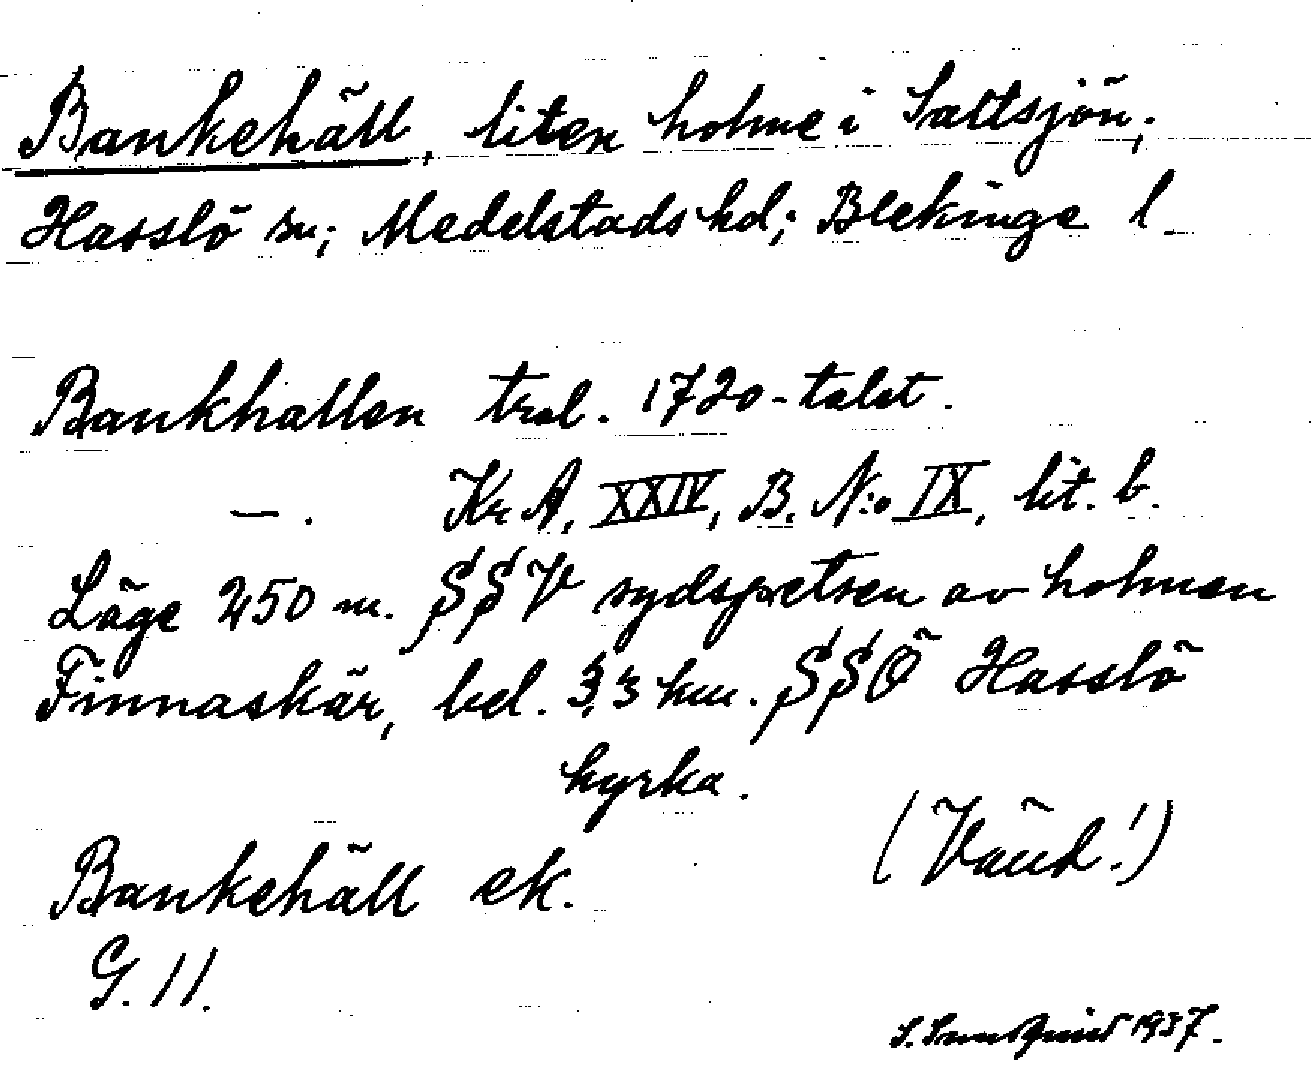 Bankehäll, liten holme i Saltsjön;
Hasslö sn; Medelstads hd; Blekinge l
Bankhallen trol. 1720-talet.
—. Kr A, XXIV, B. N:o IX, lit. b.
Läge 250 m. SSV sydspetsen av holmen
Finnaskär, bel. 3,3 km. SSÖ Hasslö
kyrka.
(Vänd!)
Bankehäll ek.
G. 11.
S. 1937.